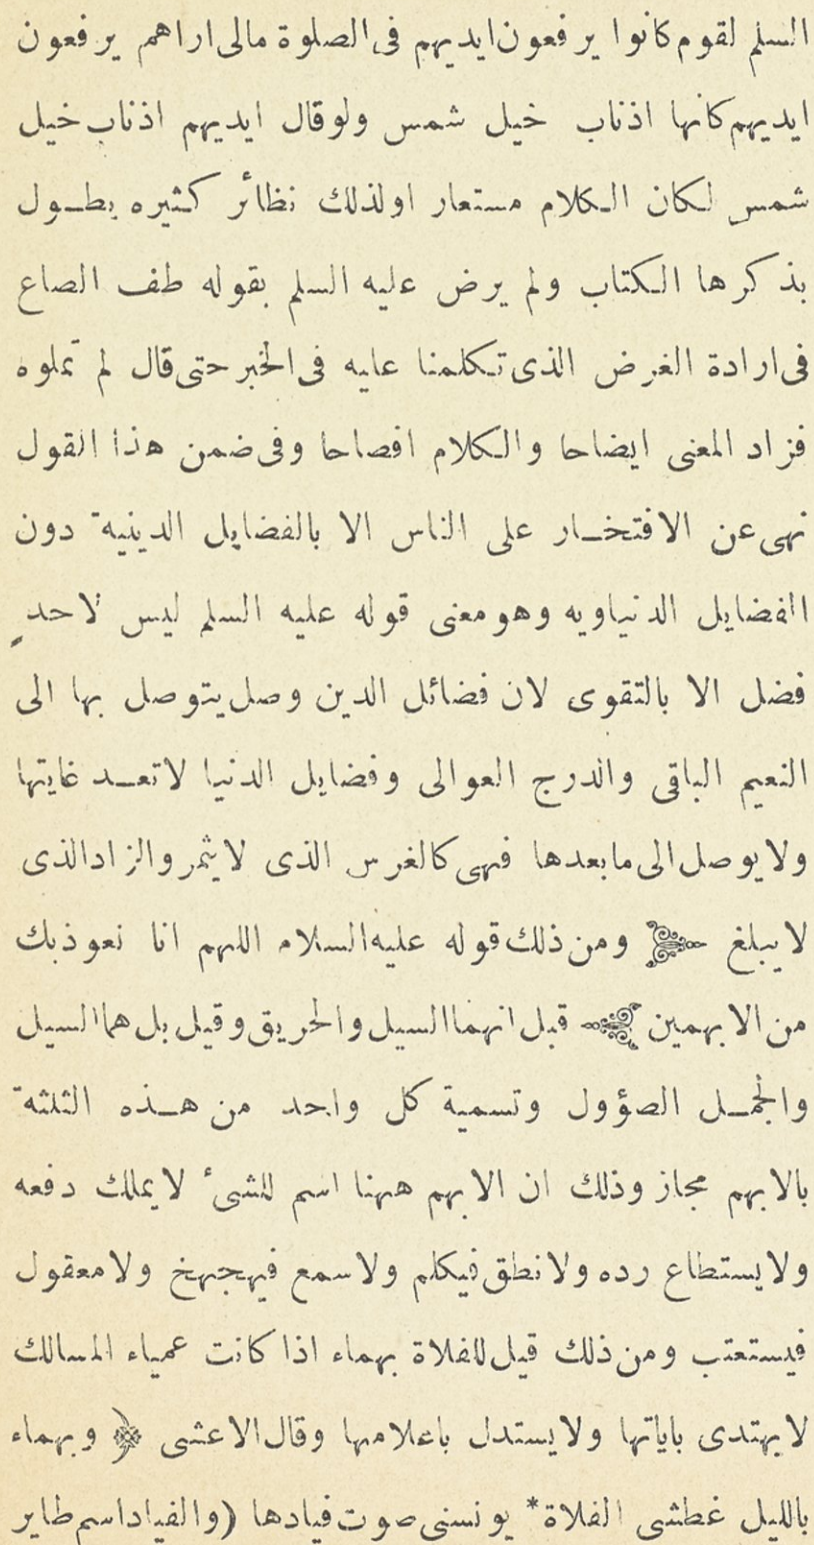 السلم لقوم كانوا يرفعون ايديهم فى الصلوة مالى اراهم يرفعون
ايديهم كانها اذناب خيل شمس ولو قال ايديهم اذناب خيل
شمس لكان الكلام مستعار اولذلك نظائر كثيره يطـول
بذكرها الكتاب ولم يرض عليه السلم بقوله طف الصاع
فى ارادة الغرض الذى تكلمنا عليه فى الخبر حتى قال لم تملوه
فزاد المعنى ايضاحا والكلام افصاحا وفى ضمن هذا القول
نهى عن الافتخـار على الناس الا بالفضايل الدينية دون
الفضايل الدنياويه وهو معنى قوله عليه السلم ليس لاحدٍ
فضل الا بالتقوى لان فضائل الدين وصل يتوصل بها الى
النعيم الباقى والدرج العوالى وفضايل الدنيا لا تعـد غايتها
ولا يوصل الى ما بعدها فهى كالغرس الذى لا يثمر والزاد الذى
لا يبلغ ﴿ ومن ذلك قوله عليه السلام اللهم انا نعوذ بك
من الابهمين ﴾ قيل انهما السيل والحريق وقيل بل هما السيل
والجمـل الصؤول وتسمية كل واحد من هـذه الثلثة
بالابهم مجاز وذلك ان الابهم ههنا اسم للشىء لا يملك دفعه
ولا يستطاع رده ولا نطق فيكلم ولا سمع فيهجهخ ولا معقول
فيستعتب ومن ذلك قيل للفلاة بهماء اذا كانت عمياء المسالك
لا يهتدى باياتها ولا يستدل باعلامها وقال الاعشى ﴿ وبهماء
بالليل غطشى الفلاة* يونسنى صوت فيادها (والفياد اسم طاير